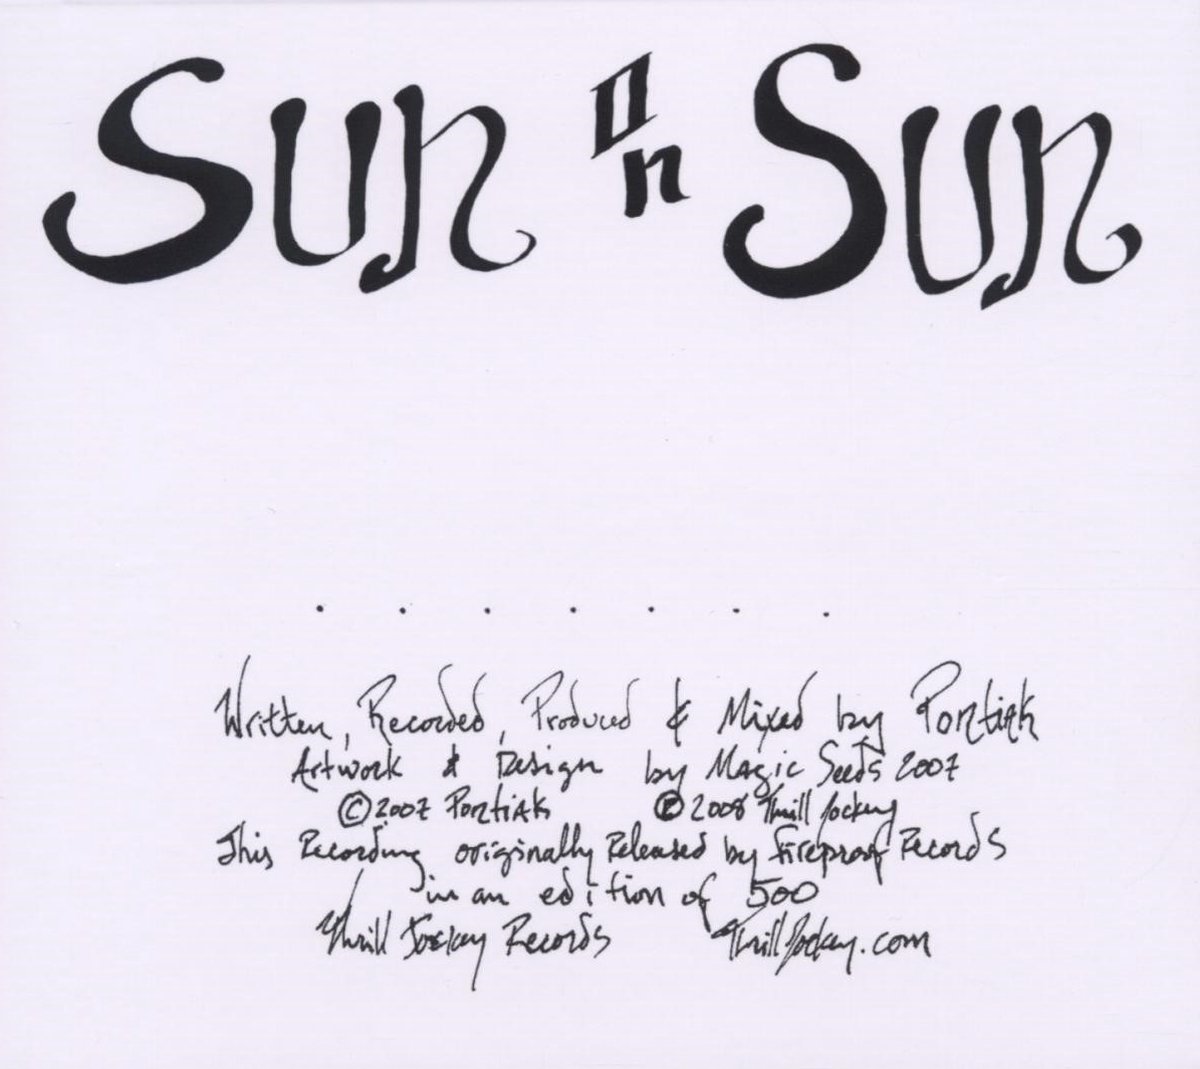 Sun on Sun
. . . . . . .
Written, Recorded, Produced & Mixed by Pontiak
Artwork & Design by Magic Seeds 2007
© 2007 Pontiak ℗ 2008 Thrill Jockey
This Recording originally Released by Fireproof Records
in an edition of 500
Thrill Jockey Records ThrillJockey.com